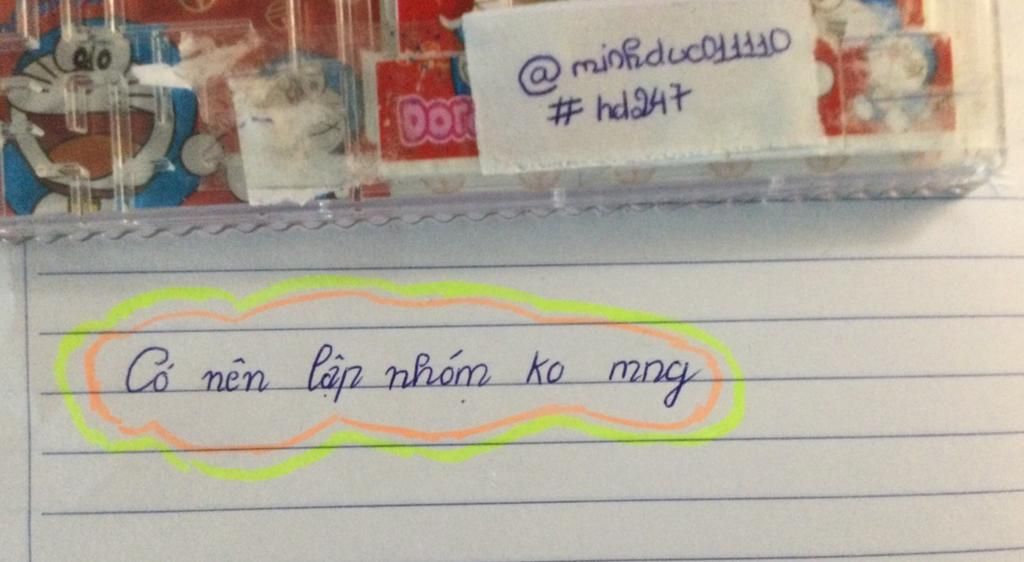 @minhduc011110
#hd247
DOR
Có nên lập nhóm ko mng